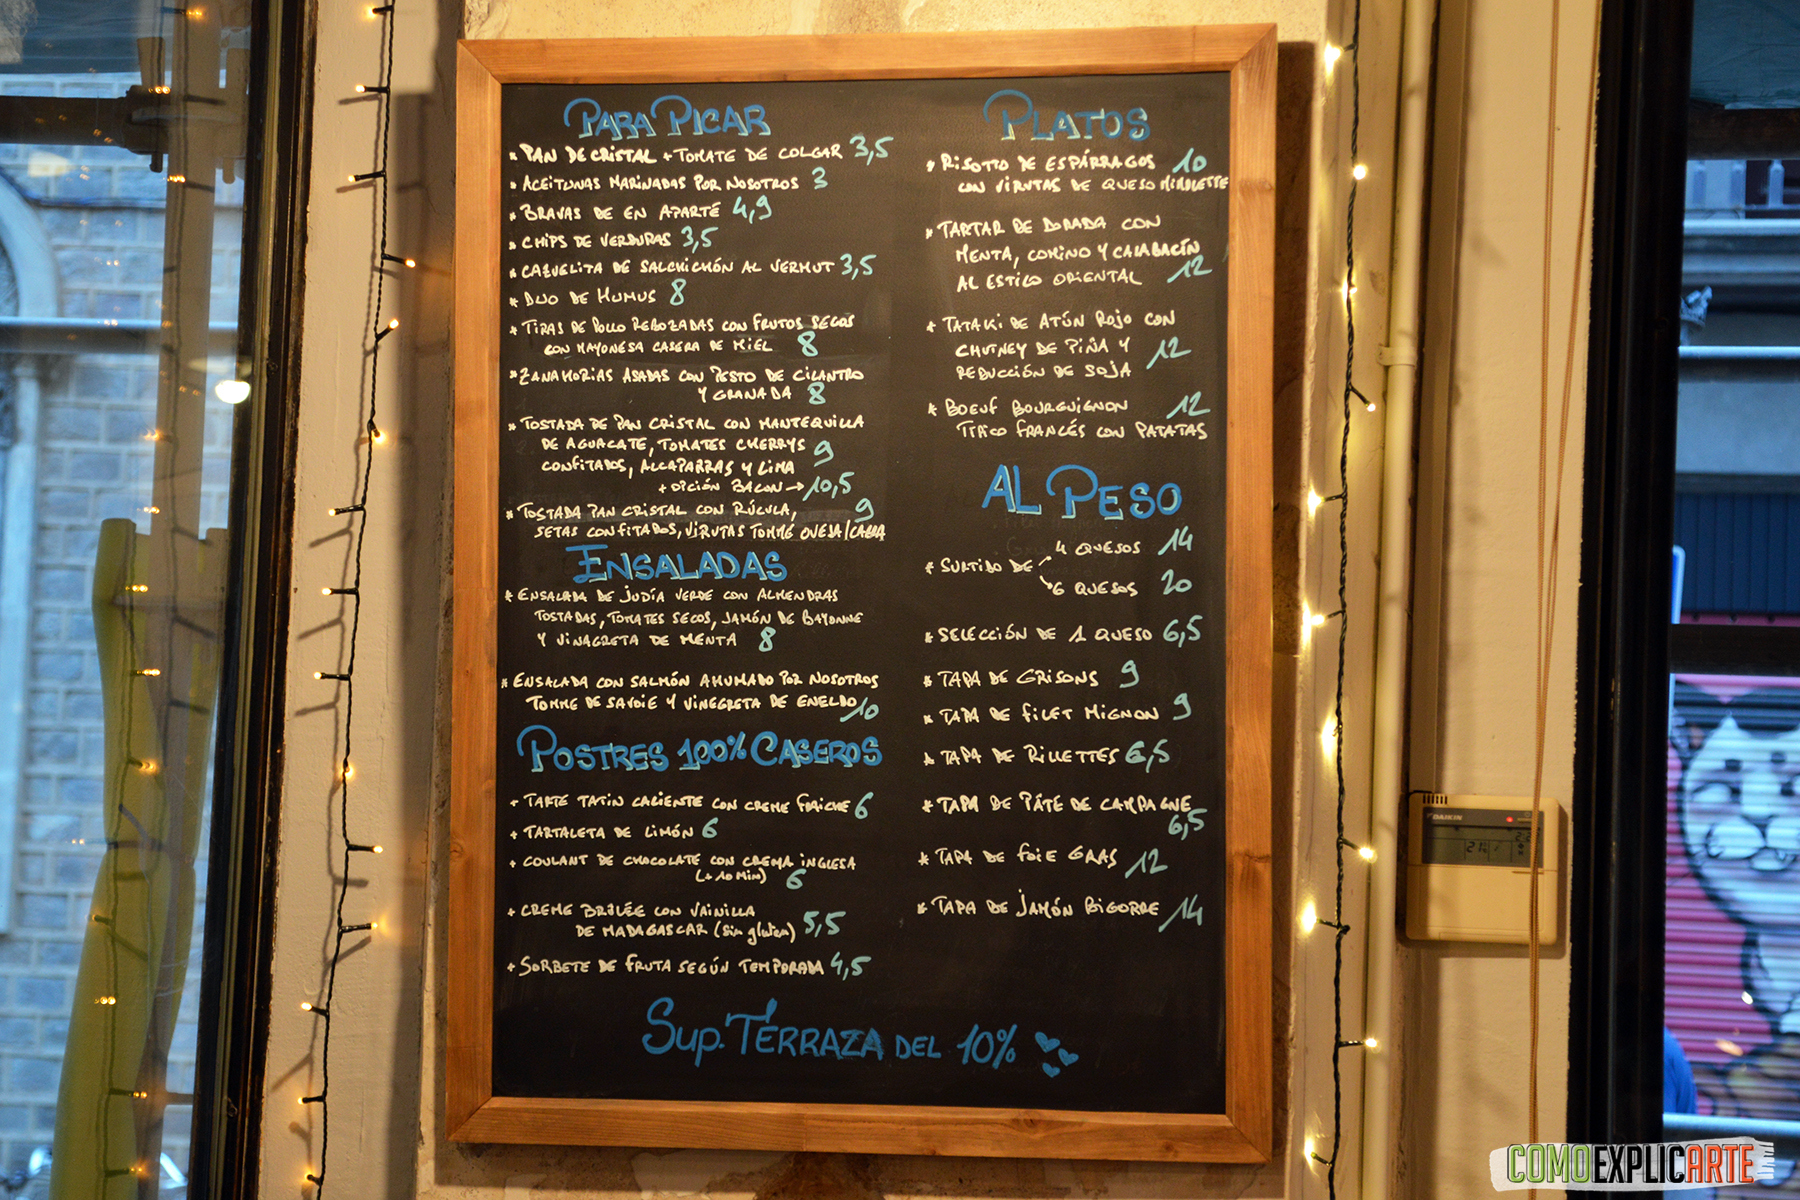 PARA PICAR
* PAN DE CRISTAL + TOMATE DE COLGAR 3,5
* ACEITUNAS MARINADAS POR NOSOTROS 3
* BRAVAS DE EN APARTÉ 4,9
* CHIPS DE VERDURAS 3,5
* CAZUELITA DE SALCHICHÓN AL VERMUT 3,5
* DUO DE HUMUS 8
* TIRAS DE POLLO REBOZADAS CON FRUTOS SECOS
CON MAYONESA CASERA DE MIEL 8
* ZANAHORIAS ASADAS CON PESTO DE CILANTRO
Y GRANADA 8
* TOSTADA DE PAN CRISTAL CON MANTEQUILLA
DE AGUACATE, TOMATES CHERRYS
CONFITADOS, ALCAPARRAS Y LIMA 9
+ OPCIÓN BACON → 10,5
* TOSTADA PAN CRISTAL CON RÚCULA, 9
SETAS CONFITADOS, VIRUTAS TOMME OVEJA/CABRA
ENSALADAS
* ENSALADA DE JUDÍA VERDE CON ALMENDRAS
TOSTADAS, TOMATES SECOS, JAMÓN DE BAYONNE
Y VINAGRETA DE MENTA 8
* ENSALADA CON SALMÓN AHUMADO POR NOSOTROS
TOMME DE SAVOIE Y VINEGRETA DE ENELDO 10
POSTRES 100% CASEROS
+ TARTE TATIN CALIENTE CON CREME FRAICHE 6
+ TARTALETA DE LIMÓN 6
+ COULANT DE CHOCOLATE CON CREMA INGLESA
(+10 MIN) 6
+ CREME BRULÉE CON VAINILLA
DE MADAGASCAR (Sin gluten) 5,5
+ SORBETE DE FRUTA SEGÚN TEMPORADA 4,5
PLATOS
* RISOTTO DE ESPÁRRAGOS 10
CON VIRUTAS DE QUESO MIMOLETTE
* TARTAR DE DORADA CON
MENTA, COMINO Y CALABACÍN
AL ESTILO ORIENTAL 12
* TATAKI DE ATÚN ROJO CON
CHUTNEY DE PIÑA Y 12
REDUCCIÓN DE SOJA
* BOEUF BOURGUIGNON 12
TÍPICO FRANCÉS CON PATATAS
AL PESO
4 QUESOS 14
* SURTIDO DE
6 QUESOS 20
* SELECCIÓN DE 1 QUESO 6,5
* TAPA DE GRISONS 9
* TAPA DE FILET MIGNON 9
* TAPA DE RILLETTES 6,5
* TAPA DE PÂTE DE CAMPAGNE
6,5
* TAPA DE FOIE GRAS 12
* TAPA DE JAMÓN BIGORRE 14
SUP. TERRAZA DEL 10%
DAIKIN
COMOEXPLICARTE